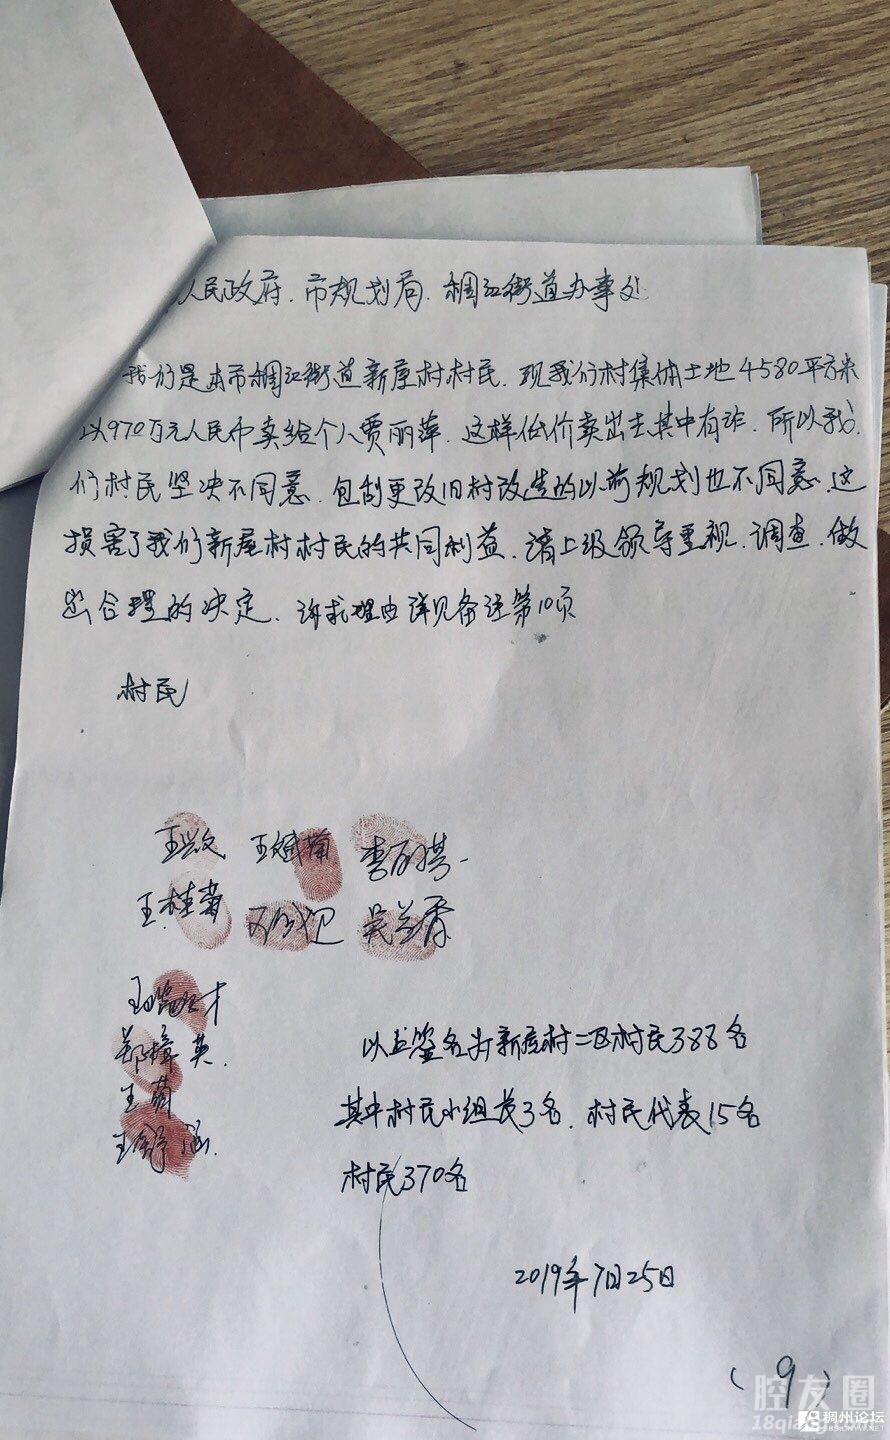 人民政府.市规划局.稠江街道办事处
我们是本市稠江街道新屋村村民.现我们村集体土地4580平方米
以970万元人民币卖给个人贾丽萍.这样低价卖出去其中有诈.所以我
们村民坚决不同意.包刮更改旧村改造的以前规划也不同意.这
损害了我们新屋村村民的共同利益.请上级领导重视.调查.做
出合理的决定.诉求理由详见备注第10页
村民
王兴文
王桂菊 吴兰香
郑樟英
王菊
王舒涵
以上签名为新屋村二区村民388名
其中村民小组长3名.村民代表15名
村民370名
2019年7月25日
(9)
腔友圈
稠州论坛